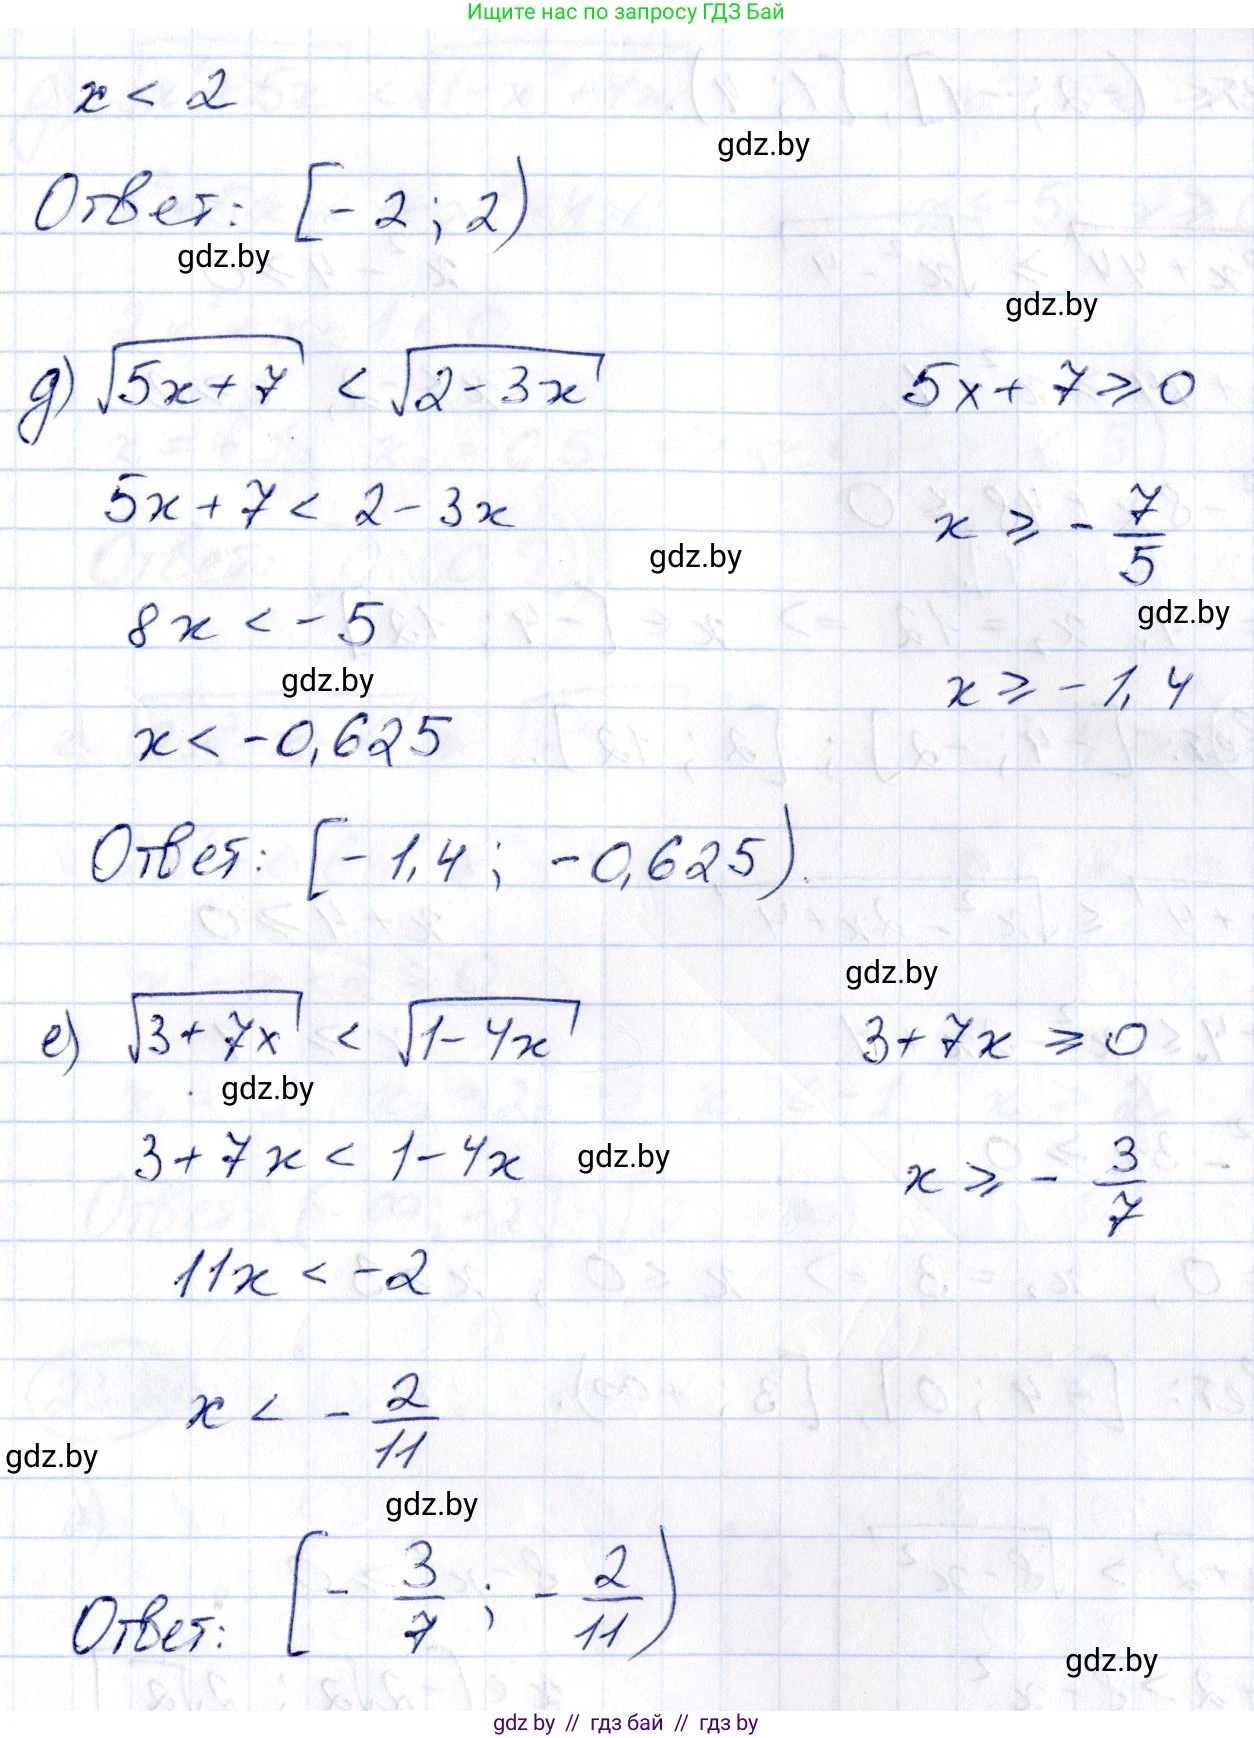 Ищите нас по запросу ГДЗ Бай
x < 2
gdz.by
Ответ: [-2; 2)
gdz.by
gdz.by
д) √(5x+7) < √(2-3x)    5x+7 ≥ 0
5x+7 < 2-3x    x ≥ -7/5
gdz.by
gdz.by
8x < -5
gdz.by
x ≥ -1,4
x < -0,625
Ответ: [-1,4; -0,625).
gdz.by
е) √(3+7x) < √(1-4x)    3+7x ≥ 0
gdz.by
3+7x < 1-4x    gdz.by    x ≥ -3/7
11x < -2
x < -2/11
gdz.by
gdz.by
Ответ: [-3/7; -2/11)
gdz.by
gdz by // гдз бай // гдз by